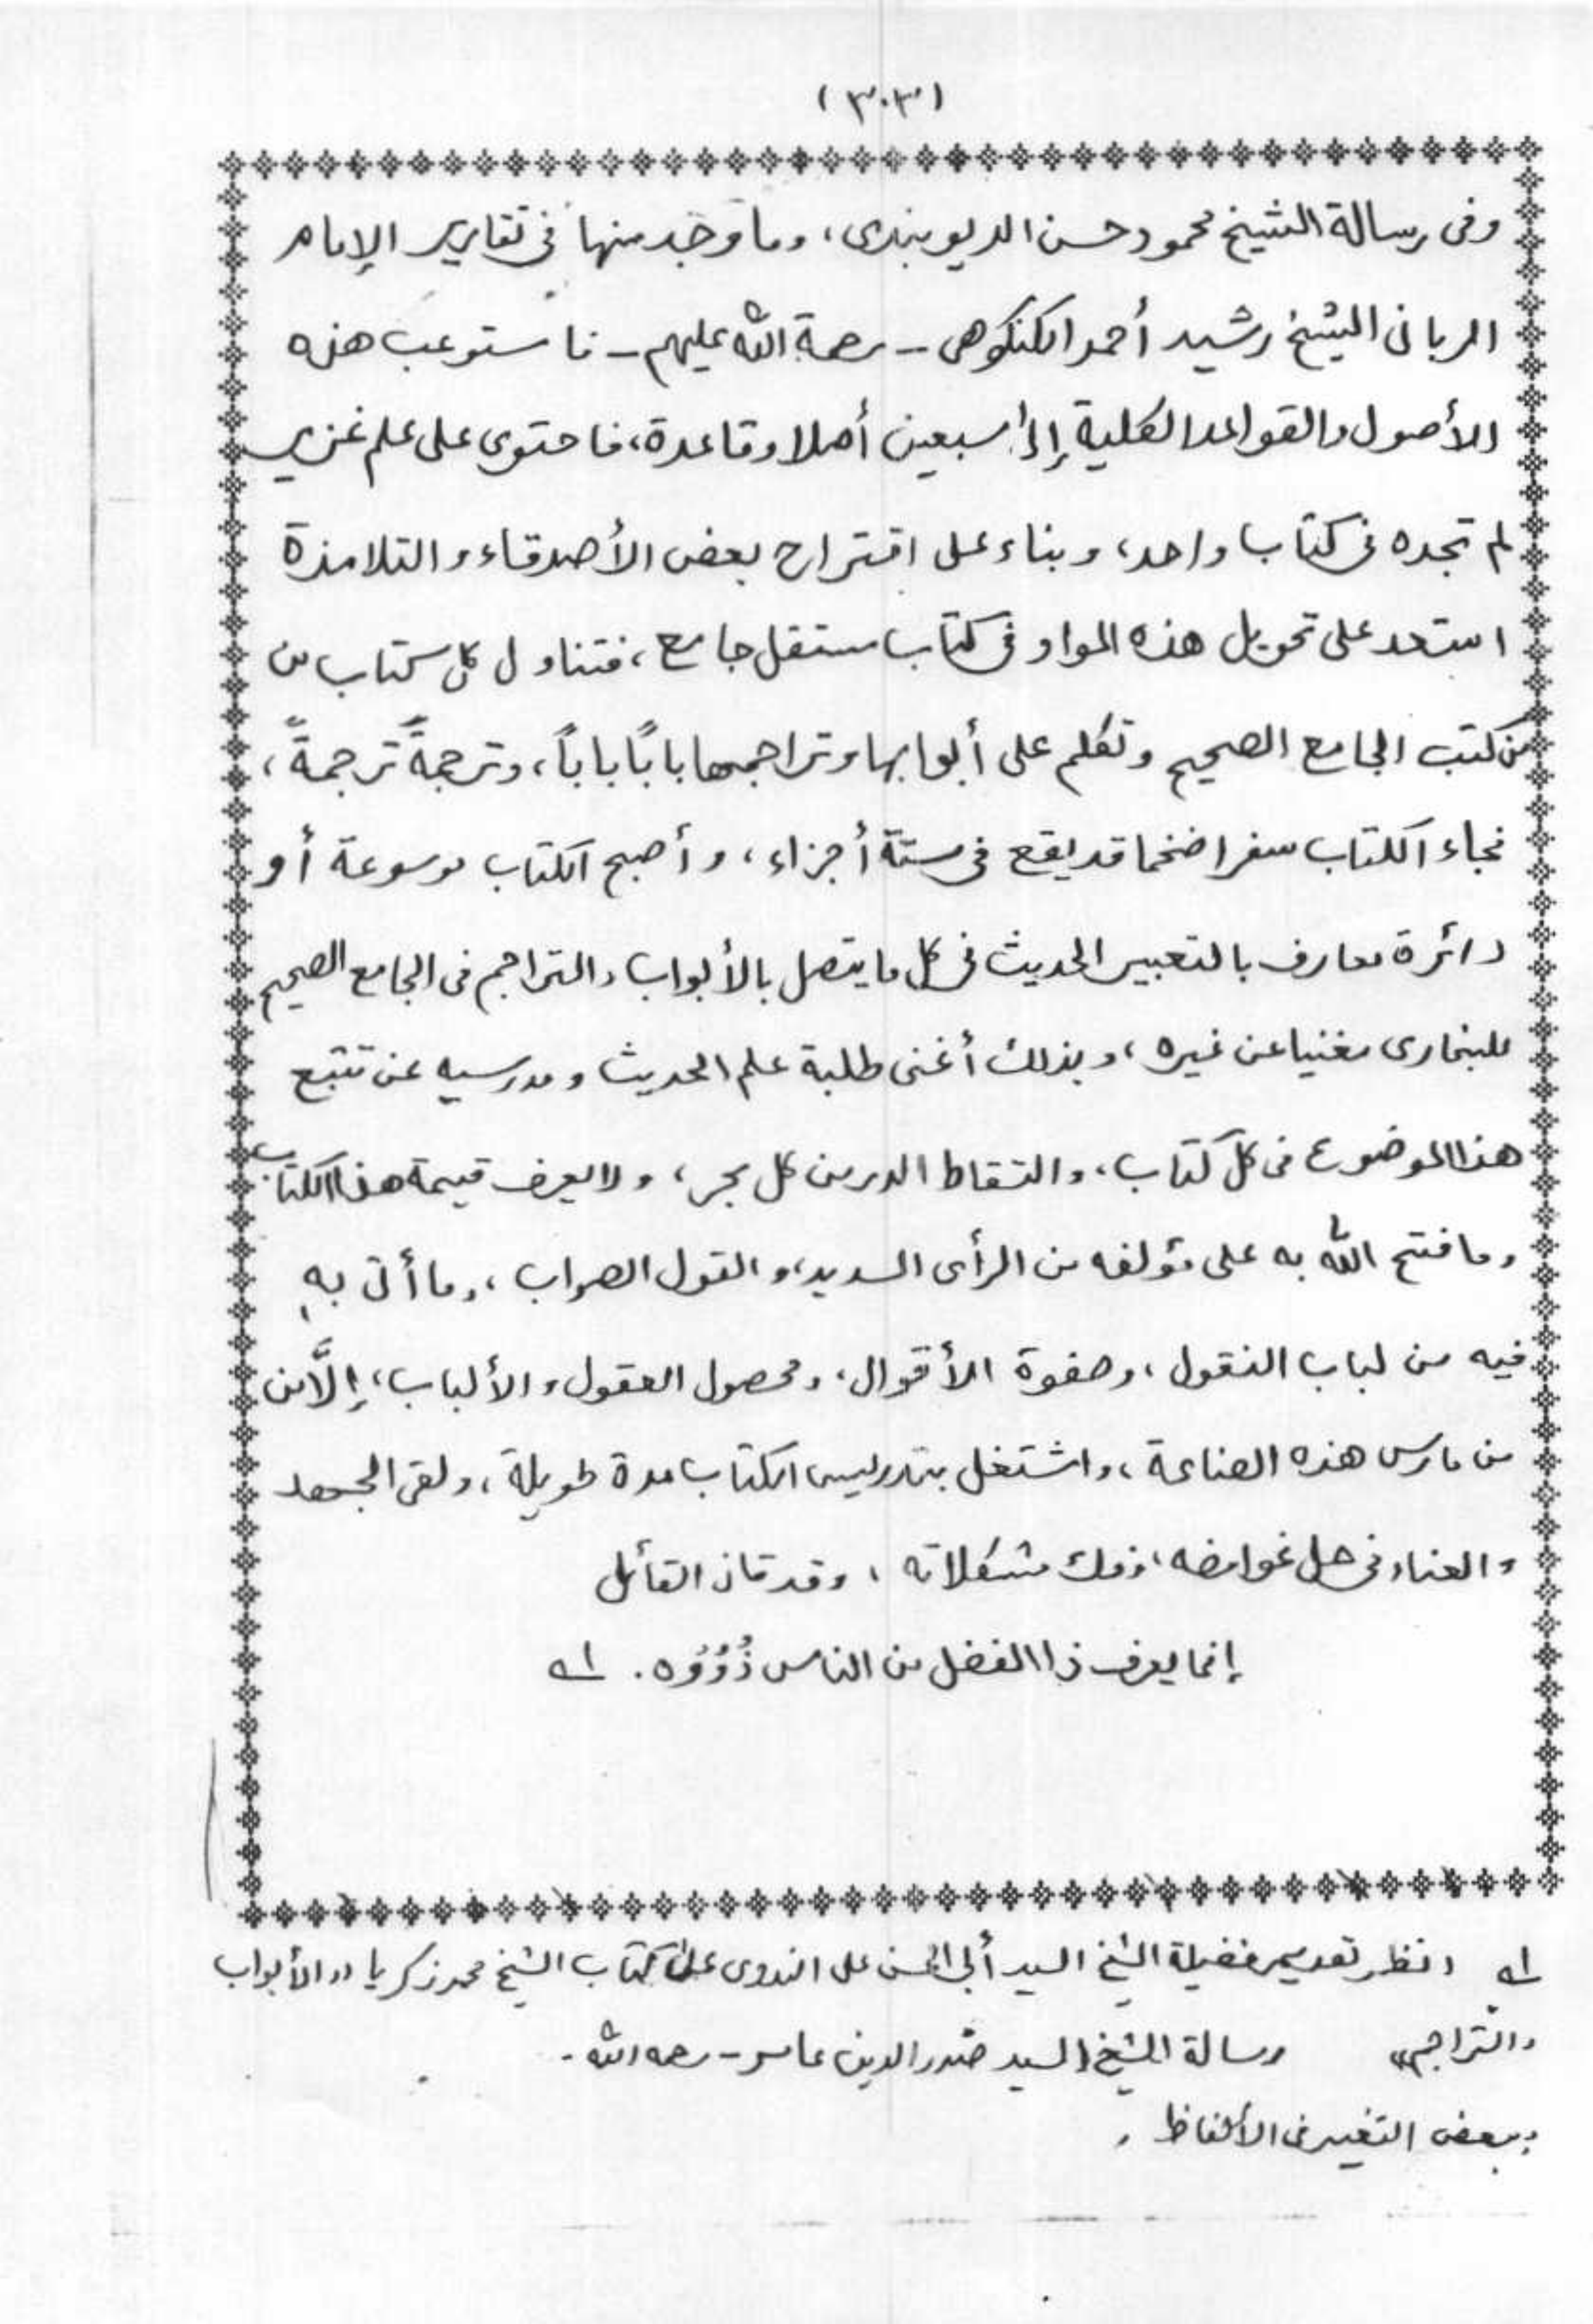 (٣٠٣)
وفى رسالة الشيخ محمود حسن الديوبندى، وما وُجد منها فى تقارير الإمام
الربانى الشيخ رشيد أحمد الكنكوهى - رحمة الله عليهم - فاستوعب هذه
الأصول والقواعد الكلية إلى سبعين أصلا وقاعدة، فاحتوى على علم غزير
لم تجده فى كتاب واحد، وبناء على اقتراح بعض الأصدقاء والتلامذة
استعد على تحويل هذه المواد فى كتاب مستقل جامع، فتناول كل كتاب من
من كتب الجامع الصحيح وتكلم على أبوابها وتراجمها بابًا باباً، وترجمةً ترجمةً،
فجاء الكتاب سفرا ضخما قد يقع فى ستة أجزاء، وأصبح الكتاب موسوعة أو
دائرة معارف بالتعبير الحديث فى كل ما يتصل بالأبواب والتراجم فى الجامع الصحيح
للبخارى مغنيا عن غيره، وبذلك أغنى طلبة علم الحديث ومدرسيه عن تتبع
هذا الموضوع فى كل كتاب، والتقاط الدر من كل بحر، ولا يعرف قيمة هذا الكتاب
وما فتح الله به على مؤلفه من الرأى السديد، والقول الصواب، وما أتى به
فيه من لباب النقول، وصفوة الأقوال، ومحصول العقول والألباب، إلَّا من
من مارس هذه الصناعة، واشتغل بتدريس الكتاب مدة طويلة، ولقى الجهد
والعناء فى حل غوامضه، وفك مشكلاته، وقد قال القائل
إنما يعرف ذا الفضل من الناس ذُوُوْه. اه
اه انظر تقديم فضيلة الشيخ السيد أبى الحسن على الندوى على كتاب الشيخ محمد زكريا "الأبواب
والتراجم" ورسالة الشيخ السيد صدر الدين عامر - رحمه الله -
ببعض التغيير فى الألفاظ.